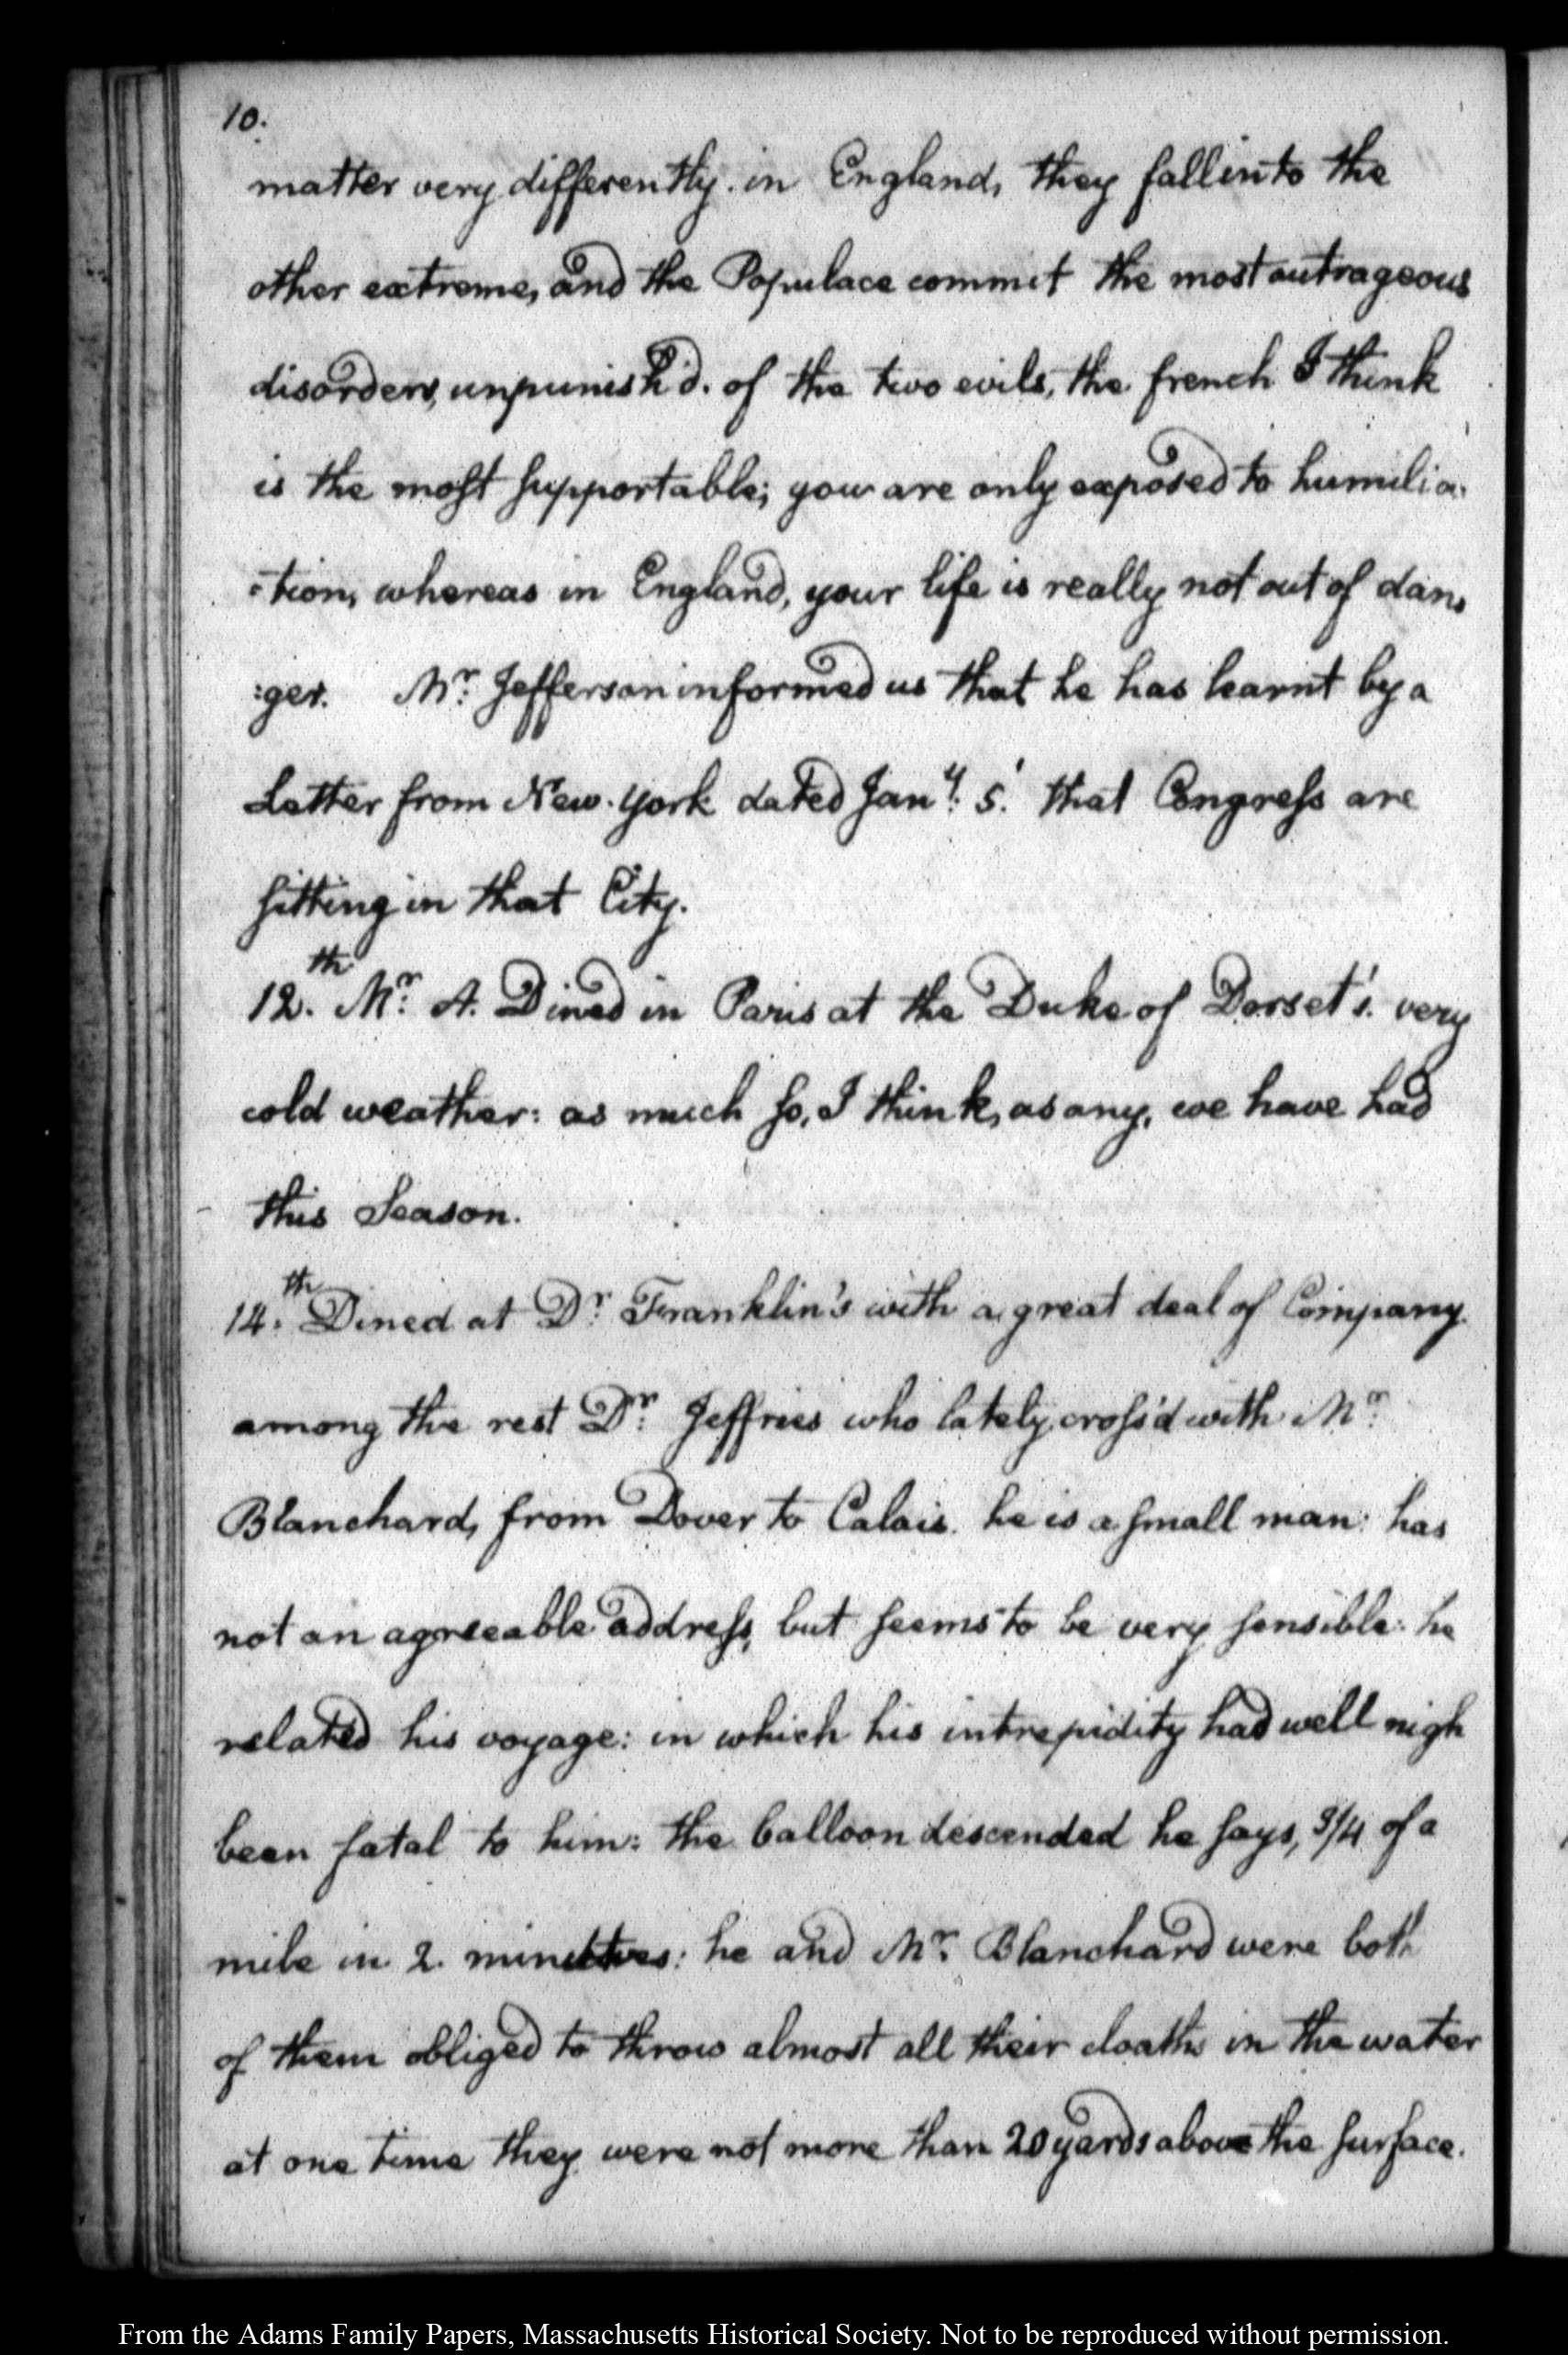 10.
matter very differently. in England, they fall into the
other extreme, and the Populace commit the most outrageous
disorders, unpunish'd. of the two evils, the french I think
is the most supportable; you are only exposed to humilia:
:tion, whereas in England, your life is really not out of dan:
:ger. Mr. Jefferson informed us that he has learnt by a
Letter from New. York dated Jany. 5. that Congress are
sitting in that City.
12.th Mr. A. Dined in Paris at the Duke of Dorset's. very
cold weather: as much so, I think, as any, we have had
this Season.
14.th Dined at Dr. Franklin's with a great deal of Company.
among the rest Dr. Jeffries who lately cross'd with Mr.
Blanchard, from Dover to Calais. he is a small man: has
not an agreeable address, but seems to be very sensible: he
related his voyage: in which his intrepidity had well nigh
been fatal to him: the balloon descended he says, 3/4 of a
mile in 2. minutes: he and Mr. Blanchard were both
of them obliged to throw almost all their cloaths in the water
at one time they were not more than 20 yards above the surface.
From the Adams Family Papers, Massachusetts Historical Society. Not to be reproduced without permission.